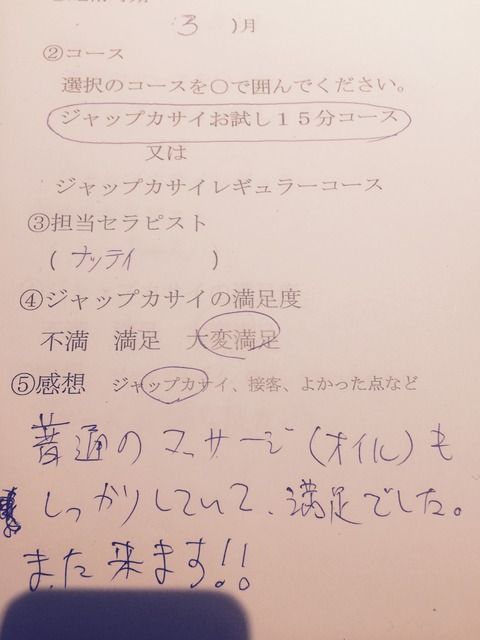 3 )月
②コース
選択のコースを○で囲んでください。
ジャップカサイお試し15分コース
又は
ジャップカサイレギュラーコース
③担当セラピスト
( ナッティ )
④ジャップカサイの満足度
不満 満足 大変満足
⑤感想 ジャップカサイ、接客、よかった点など
普通のマッサージ(オイル)も
しっかりしていて、満足でした。
また来ます!!